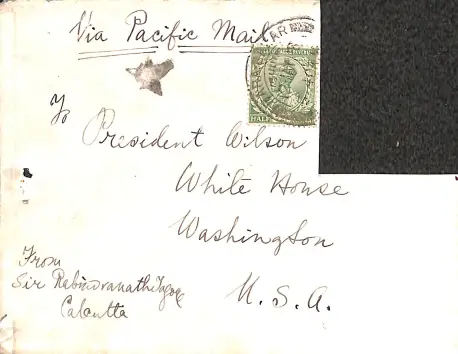 Via Pacific Mail
HALF
To
President Wilson
White House
Washington
U. S. A.
From
Sir Rabindranath Tagore
Calcutta